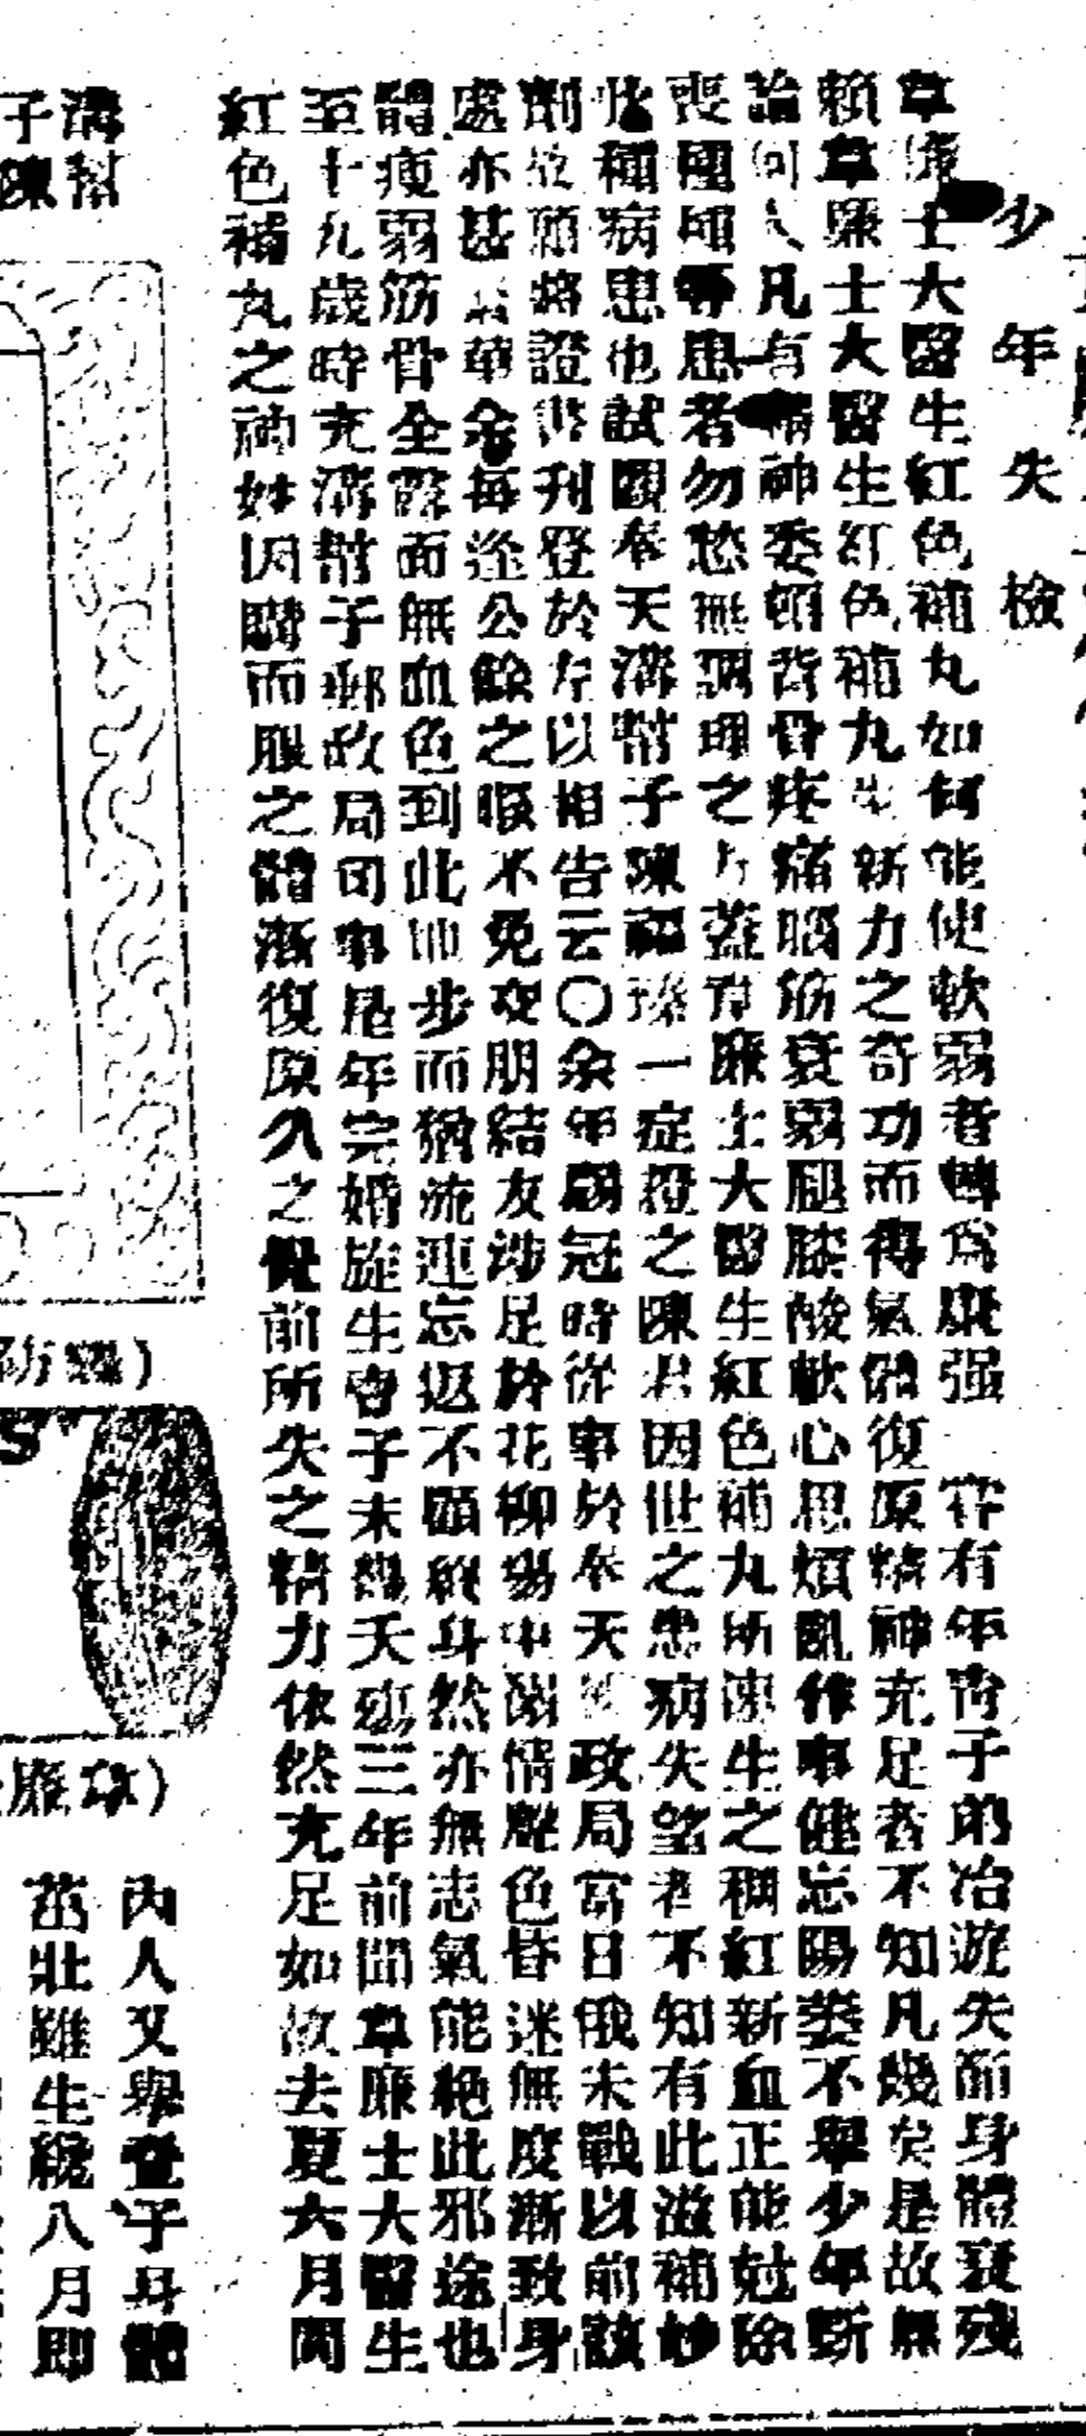 少年失檢
韋廉士大醫生紅色補丸如何能使軟弱者轉為康强 許有年青子弟冶遊失節身體衰殘
賴韋廉士大醫生紅色補丸生新力之奇功而得氣體復原精神充足者不知凡幾矣是故無
論何人凡有精神委頓背骨疼痛腦筋衰弱腿膝酸軟心思煩亂作事健忘陽萎不舉少年斲
喪國球等患者勿愁無調理之方蓋韋廉士大醫生紅色補丸所速生之稠紅新血正能尅除
此種病患也試觀奉天溝幫子陳君一症證之陳君因世之患病失望者不知有此滋補妙
劑故願將證書刊登於左以相告云〇余年弱冠時從事於奉天郵政局當日俄未戰以前該
處亦甚繁華余每逢公餘之暇不免交朋結友涉足於花柳場中溺情聲色昏迷無度漸致身
體瘦弱筋骨全露面無血色到此地步而猶流連忘返不顧終身然亦無志氣能絶此邪途也
至十九歲時充溝幫子郵政局司事是年完婚旋生書子未幾夭殤三年前聞韋廉士大醫生
紅色補丸之神妙因購而服之體漸復原久之覺前所失之精力依然充足如故去夏六月間
內人又舉壹子身體
茁壯雖生纔八月即
溝幫
子陳